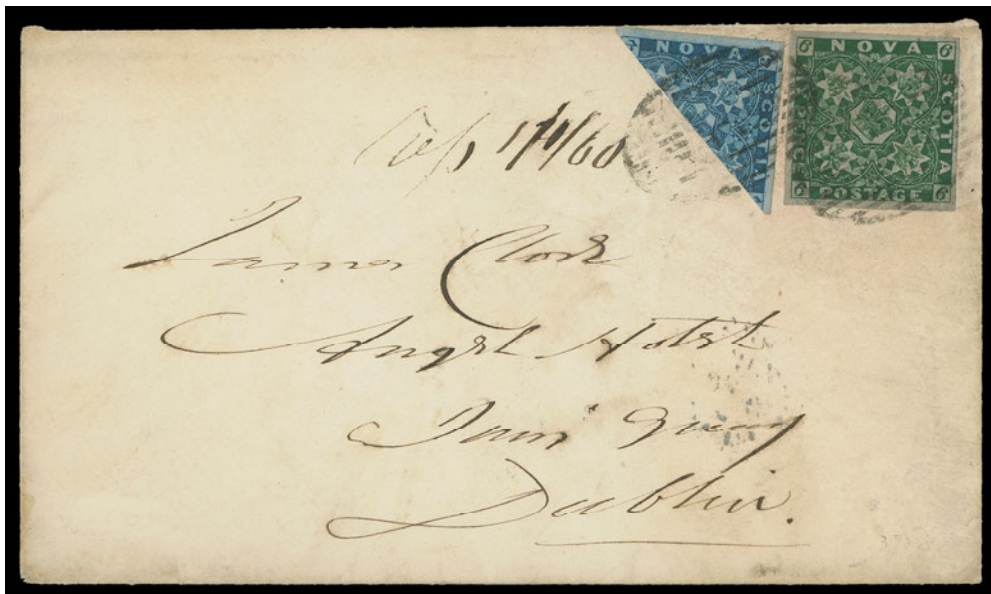 NOVA SCOTIA
6 NOVA 6
SCOTIA
6 POSTAGE 6
1/11/60
James Clark
Angel Hotel
Inns Quay
Dublin.